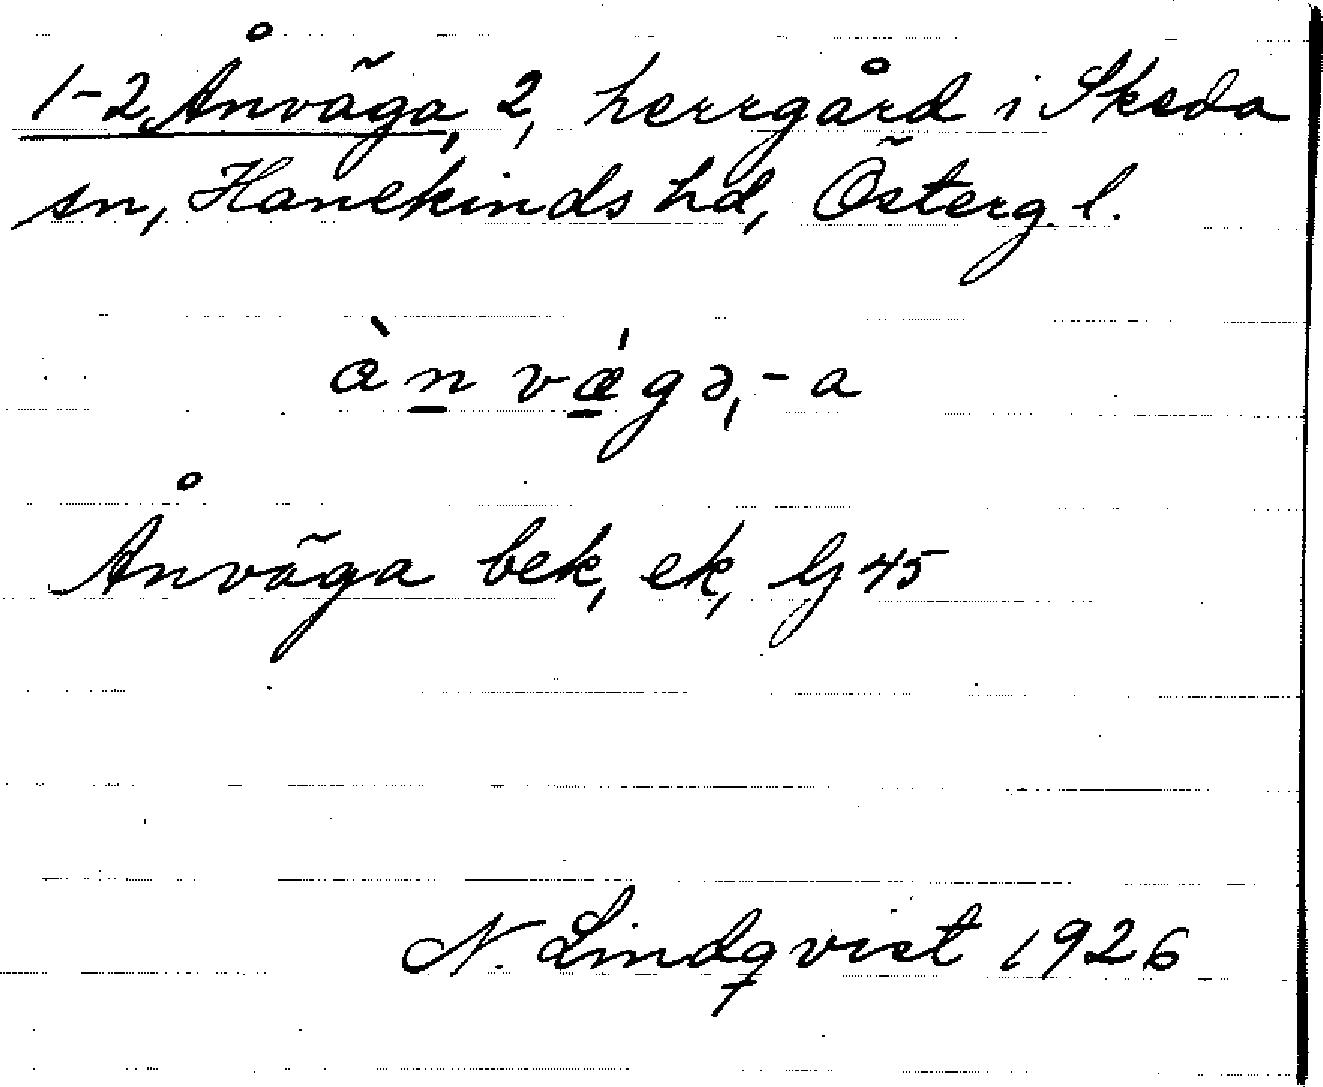 1-2 Ånväga, 2, herrgård i Skeda
sn, Hanekinds hd, Österg. l.
àn vǽgə, -a
Ånväga bek, ek, lj 45
N. Lindqvist 1926